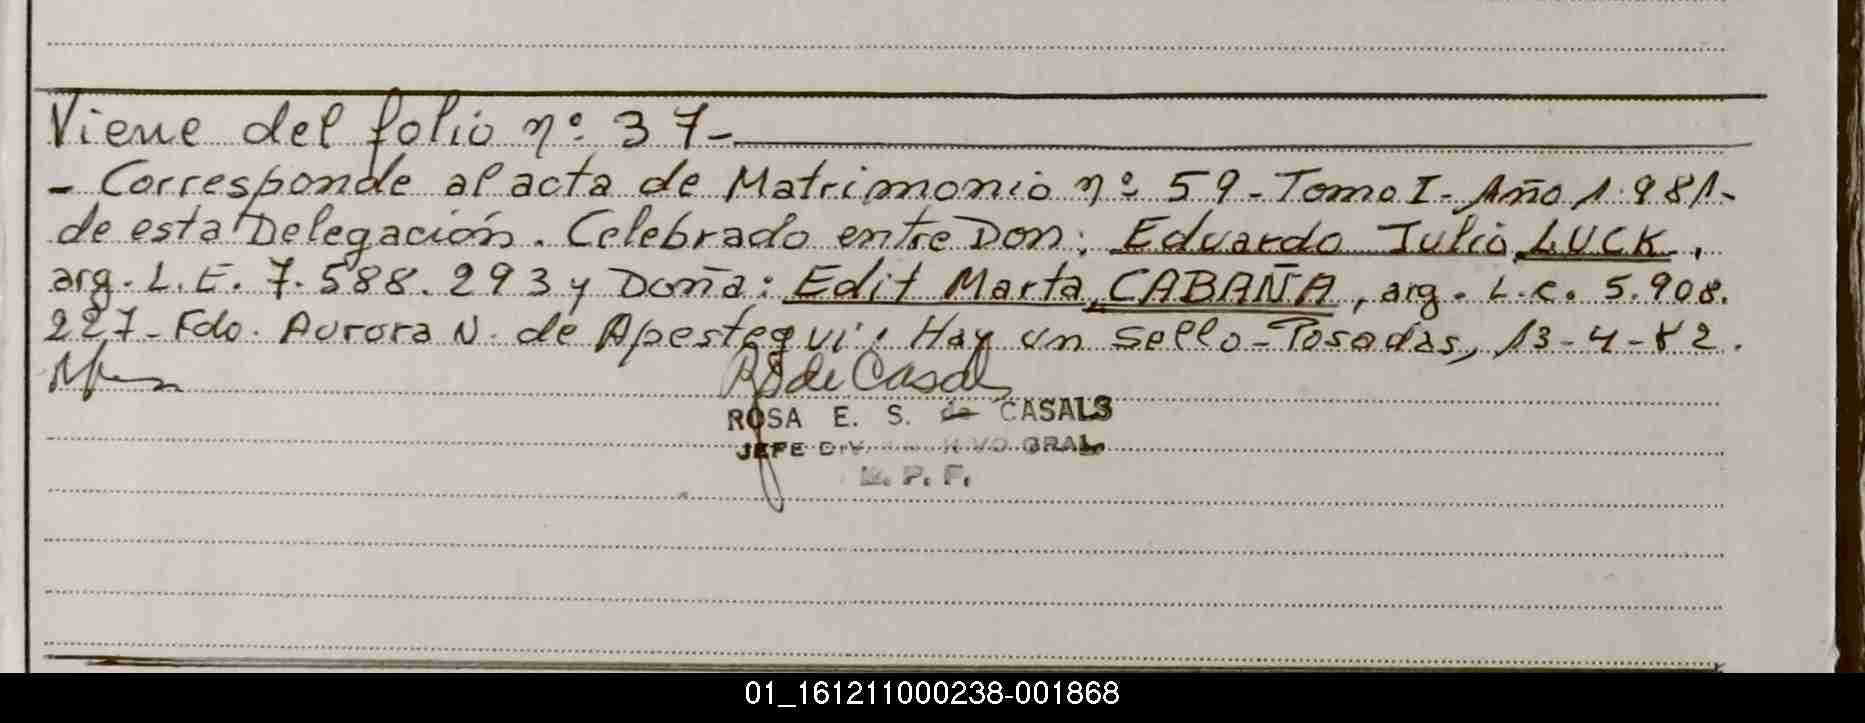 Viene del folio nº 37-
- Corresponde al acta de Matrimonio nº 59 - Tomo I - Año 1.981-
de esta Delegación. Celebrado entre Don: Eduardo Julio LUCK,
arg. L.E. 7.588.293 y Doña: Edit Marta CABAÑA, arg. L.C. 5.908.
227- Fdo. Aurora N. de Apestegui. Hay un sello - Posadas, 13-4-82.
de Casals
ROSA E. S. de CASALS
JEFE DIV. GRAL.
R. P. F.
01_161211000238-001868